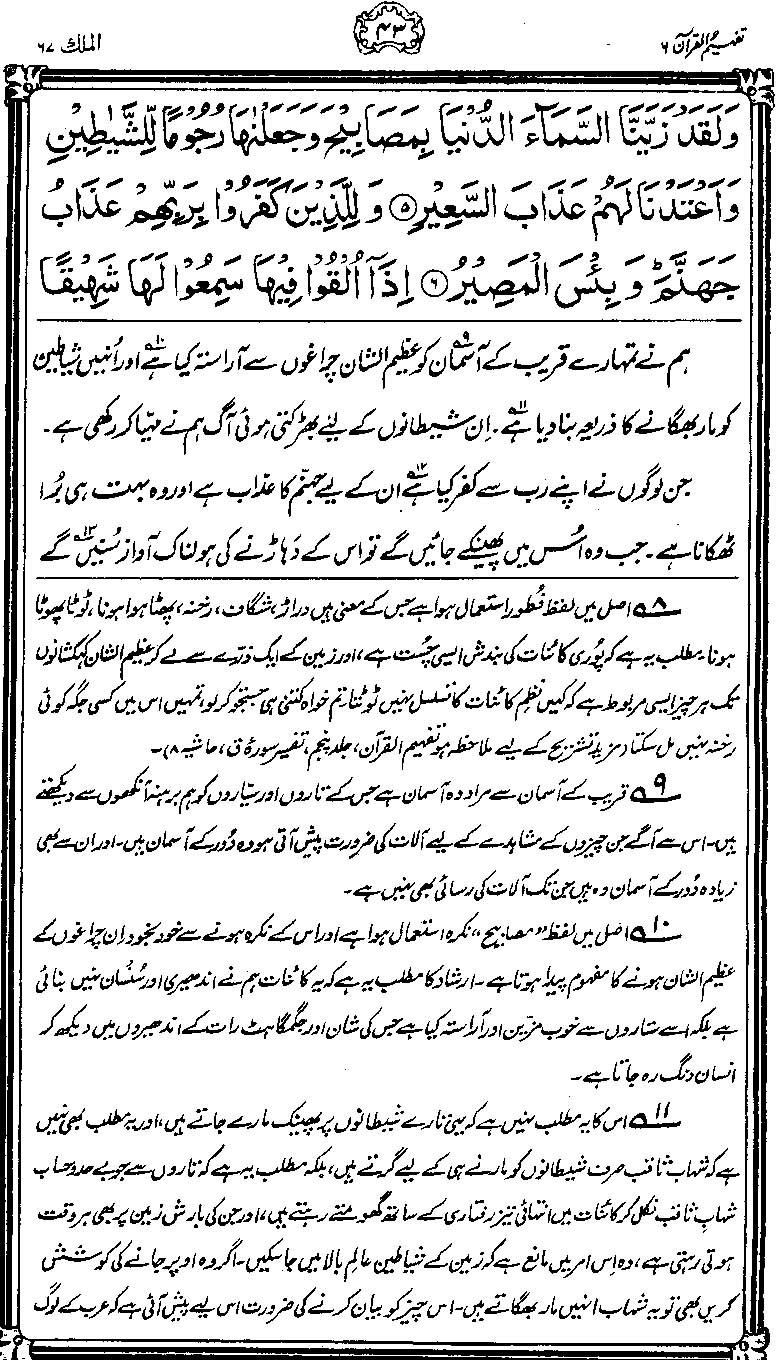 تفہیم القرآن ۶
۴۳
الملک ۶۷
وَلَقَدْ زَيَّنَّا السَّمَآءَ الدُّنْيَا بِمَصَابِيْحَ وَجَعَلْنٰهَا رُجُوْمًا لِّلشَّيٰطِيْنِ
وَاَعْتَدْنَا لَهُمْ عَذَابَ السَّعِيْرِ ۵ وَلِلَّذِيْنَ كَفَرُوْا بِرَبِّهِمْ عَذَابُ
جَهَنَّمَ ؕ وَبِئْسَ الْمَصِيْرُ ۶ اِذَآ اُلْقُوْا فِيْهَا سَمِعُوْا لَهَا شَهِيْقًا
ہم نے تمہارے قریب کے آسمان۹ کو عظیم الشان چراغوں سے آراستہ کیا ہے۱۰ اور اُنہیں شیاطین
کو مار بھگانے کا ذریعہ بنا دیا ہے۱۱۔ اِن شیطانوں کے لیے بھڑکتی ہوئی آگ ہم نے مہیا کر رکھی ہے۔
جن لوگوں نے اپنے رب سے کفر کیا ہے۱۲ ان کے لیے جہنّم کا عذاب ہے اور وہ بہت ہی بُرا
ٹھکانا ہے۔ جب وہ اُس میں پھینکے جائیں گے تو اس کے دَہاڑنے کی ہولناک آواز سُنیں۱۳ گے
۸ اصل میں لفظ فُطُور استعمال ہوا ہے جس کے معنی ہیں دراڑ، شگاف، رخنہ، پھٹا ہوا ہونا، ٹوٹا پھوٹا
ہونا۔ مطلب یہ ہے کہ پُوری کائنات کی بندش ایسی چُست ہے، اور زمین کے ایک ذرّے سے لے کر عظیم الشان کہکشانوں
تک ہر چیز ایسی مربوط ہے کہ کہیں نظمِ کائنات کا تسلسل نہیں ٹوٹتا۔ تم خواہ کتنی ہی جستجو کر لو، تمہیں اس میں کسی جگہ کوئی
رخنہ نہیں مل سکتا (مزید تشریح کے لیے ملاحظہ ہو تفہیم القرآن، جلد پنجم، تفسیر سورۂ ق، حاشیہ ۸)۔
۹ قریب کے آسمان سے مراد وہ آسمان ہے جس کے تاروں اور سیّاروں کو ہم برہنہ آنکھوں سے دیکھتے
ہیں۔ اس سے آگے جن چیزوں کے مشاہدے کے لیے آلات کی ضرورت پیش آتی ہو وہ دُور کے آسمان ہیں۔ اور ان سے بھی
زیادہ دُور کے آسمان وہ ہیں جن تک آلات کی رسائی بھی نہیں ہے۔
۱۰ اصل میں لفظ ”مصابیح“ نکرہ استعمال ہوا ہے اور اس کے نکرہ ہونے سے خود بخود ان چراغوں کے
عظیم الشان ہونے کا مفہوم پیدا ہوتا ہے۔ ارشاد کا مطلب یہ ہے کہ یہ کائنات ہم نے اندھیری اور سُنسان نہیں بنائی
ہے بلکہ اسے ستاروں سے خوب مزّین اور آراستہ کیا ہے جس کی شان اور جگمگاہٹ رات کے اندھیروں میں دیکھ کر
انسان دنگ رہ جاتا ہے۔
۱۱ اس کا یہ مطلب نہیں ہے کہ یہی تارے شیطانوں پر پھینک مارے جاتے ہیں، اور یہ مطلب بھی نہیں
ہے کہ شہاب ثاقب صرف شیطانوں کو مارنے ہی کے لیے گرتے ہیں، بلکہ مطلب یہ ہے کہ تاروں سے جو بے حد و حساب
شہابِ ثاقب نکل کر کائنات میں انتہائی تیز رفتاری کے ساتھ گھومتے رہتے ہیں، اور جن کی بارش زمین پر بھی ہر وقت
ہوتی رہتی ہے، وہ اِس امر میں مانع ہے کہ زمین کے شیاطین عالم بالا میں جا سکیں۔ اگر وہ اوپر جانے کی کوشش
کریں بھی تو یہ شہاب انہیں مار بھگاتے ہیں۔ اس چیز کو بیان کرنے کی ضرورت اس لیے پیش آئی ہے کہ عرب کے لوگ